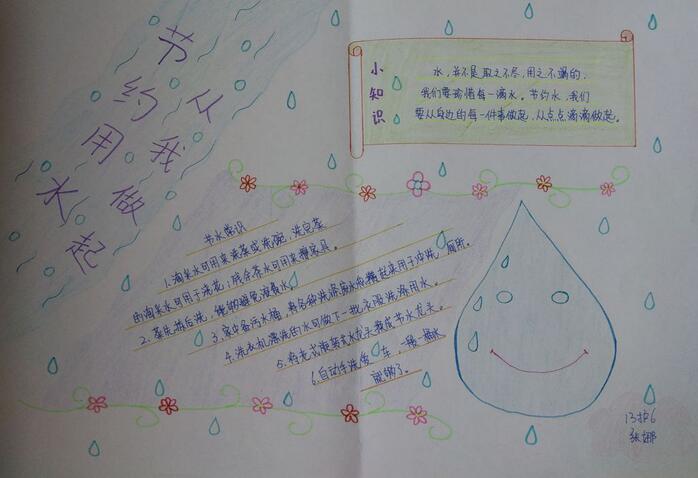 节约用水
从我做起
小知识
水，并不是取之不尽，用之不竭的，
我们要珍惜每一滴水。节约水，我们
要从身边的每一件事做起，从点点滴滴做起。
节水常识
1.淘米水可用来洗菜或洗碗，洗完菜
的淘米水可用于浇花；残余茶水可用来擦家具。
2.菜先择后洗，能够避免浪费水
3.家中备污水桶，将各种洗涤废水收积起来用于冲洗厕所。
4.洗衣机漂洗的水可做下一批衣服洗涤用水。
5.将老式旋转式水龙头换成节水龙头。
6.自动手洗车，一桶水
就够了。
13护6
张娜